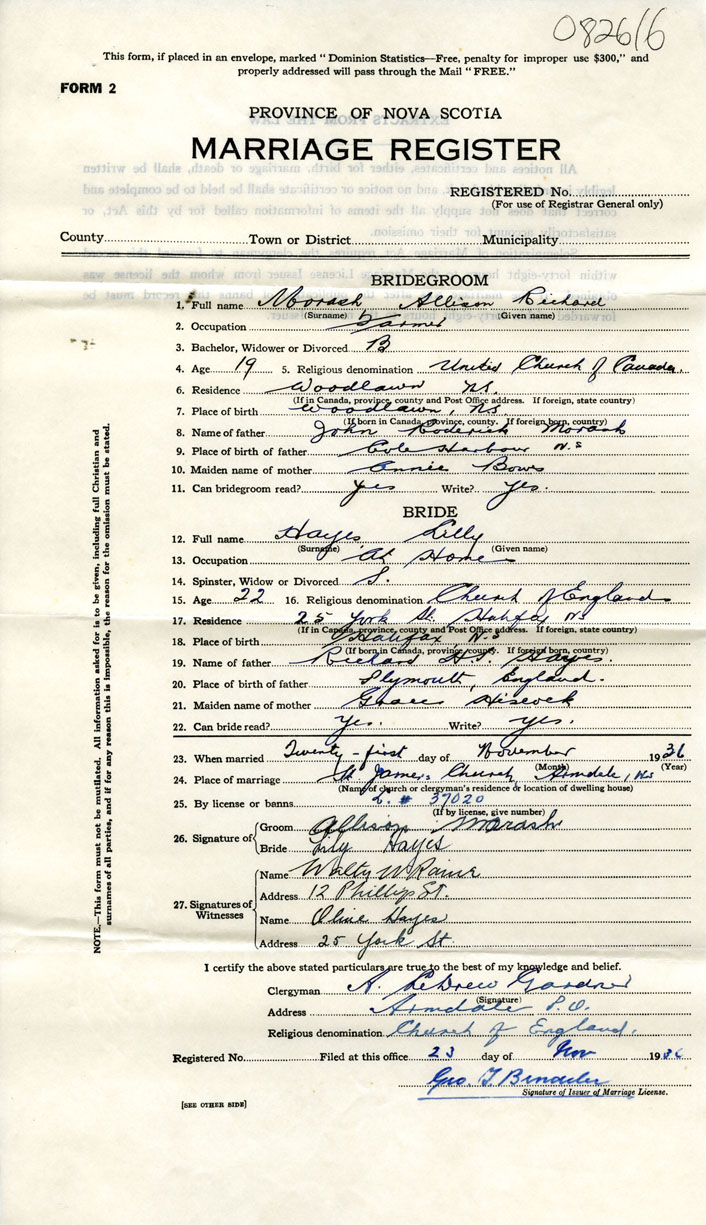 082616
This form, if placed in an envelope, marked "Dominion Statistics—Free, penalty for improper use $300," and
properly addressed will pass through the Mail "FREE."
FORM 2
PROVINCE OF NOVA SCOTIA
MARRIAGE REGISTER
REGISTERED No.
(For use of Registrar General only)
County Town or District Municipality
BRIDEGROOM
1. Full name Morash Allison Richard
(Surname) (Given name)
2. Occupation Farmer
3. Bachelor, Widower or Divorced B
4. Age 19 5. Religious denomination United Church of Canada.
6. Residence Woodlawn NS.
(If in Canada, province, county and Post Office address. If foreign, state country)
7. Place of birth Woodlawn, NS
(If born in Canada, province, county. If foreign born, country)
8. Name of father John Roderick Morash
9. Place of birth of father Cole Harbour N.S
10. Maiden name of mother Annie Bowes
11. Can bridegroom read? yes Write? yes.
BRIDE
12. Full name Hayes Lilly
(Surname) (Given name)
13. Occupation At Home
14. Spinster, Widow or Divorced S.
15. Age 22 16. Religious denomination Church of England
17. Residence 25 York St. Halifax NS
(If in Canada, province, county and Post Office address. If foreign, state country)
18. Place of birth Halifax N.S
(If born in Canada, province, county. If foreign born, country)
19. Name of father Richard Hayes.
20. Place of birth of father Plymouth, England.
21. Maiden name of mother Grace Hiscock
22. Can bride read? yes. Write? yes.
23. When married Twenty-first day of November 1936
(Month) (Year)
24. Place of marriage St James Church Armdale, NS
(Name of church or clergyman's residence or location of dwelling house)
25. By license or banns L. # 37020
(If by license, give number)
26. Signature of Groom Allison Morash
Bride Lily Hayes
27. Signatures of Witnesses
Name W Raine
Address 12 Phillip St.
Name Olive Hayes
Address 25 York St.
I certify the above stated particulars are true to the best of my knowledge and belief.
Clergyman A. LeDrew Gardner
(Signature)
Address Armdale P.O.
Religious denomination Church of England.
Registered No. Filed at this office 23 day of Nov 1936
Geo. T.
Signature of Issuer of Marriage License.
[SEE OTHER SIDE]
NOTE.—This form must not be mutilated. All information asked for is to be given, including full Christian and
surnames of all parties, and if for any reason this is impossible, the reason for the omission must be stated.